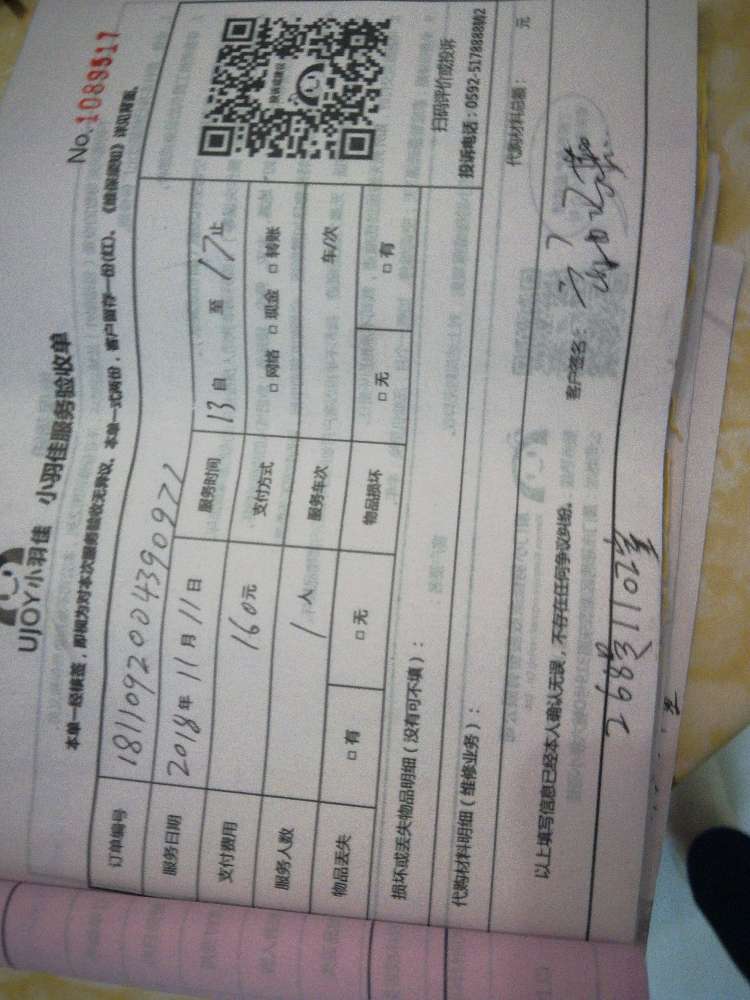 UJOY小羽佳 小羽佳服务验收单
No.1089517
本单一经核签，即视为对本次服务验收无异议、本单一式两份，客户留存一份(红)、《维保须知》详见背面。
订单编号 181109200439092
服务日期 2018年11月11日 服务时间 13自 至 17止
支付费用 160元 支付方式 □网络 □现金 □转账
服务人数 1人 服务车次 车/次
物品丢失 □有 □无 物品损坏 □无 □有
扫码评价或投诉
投诉电话：0592-5178888转2
损坏或丢失物品明细（没有可不填）：
代购材料明细（维修业务）： 代购材料总额： 元
以上填写信息已经本人确认无误，不存在任何争议纠纷。 客户签名：